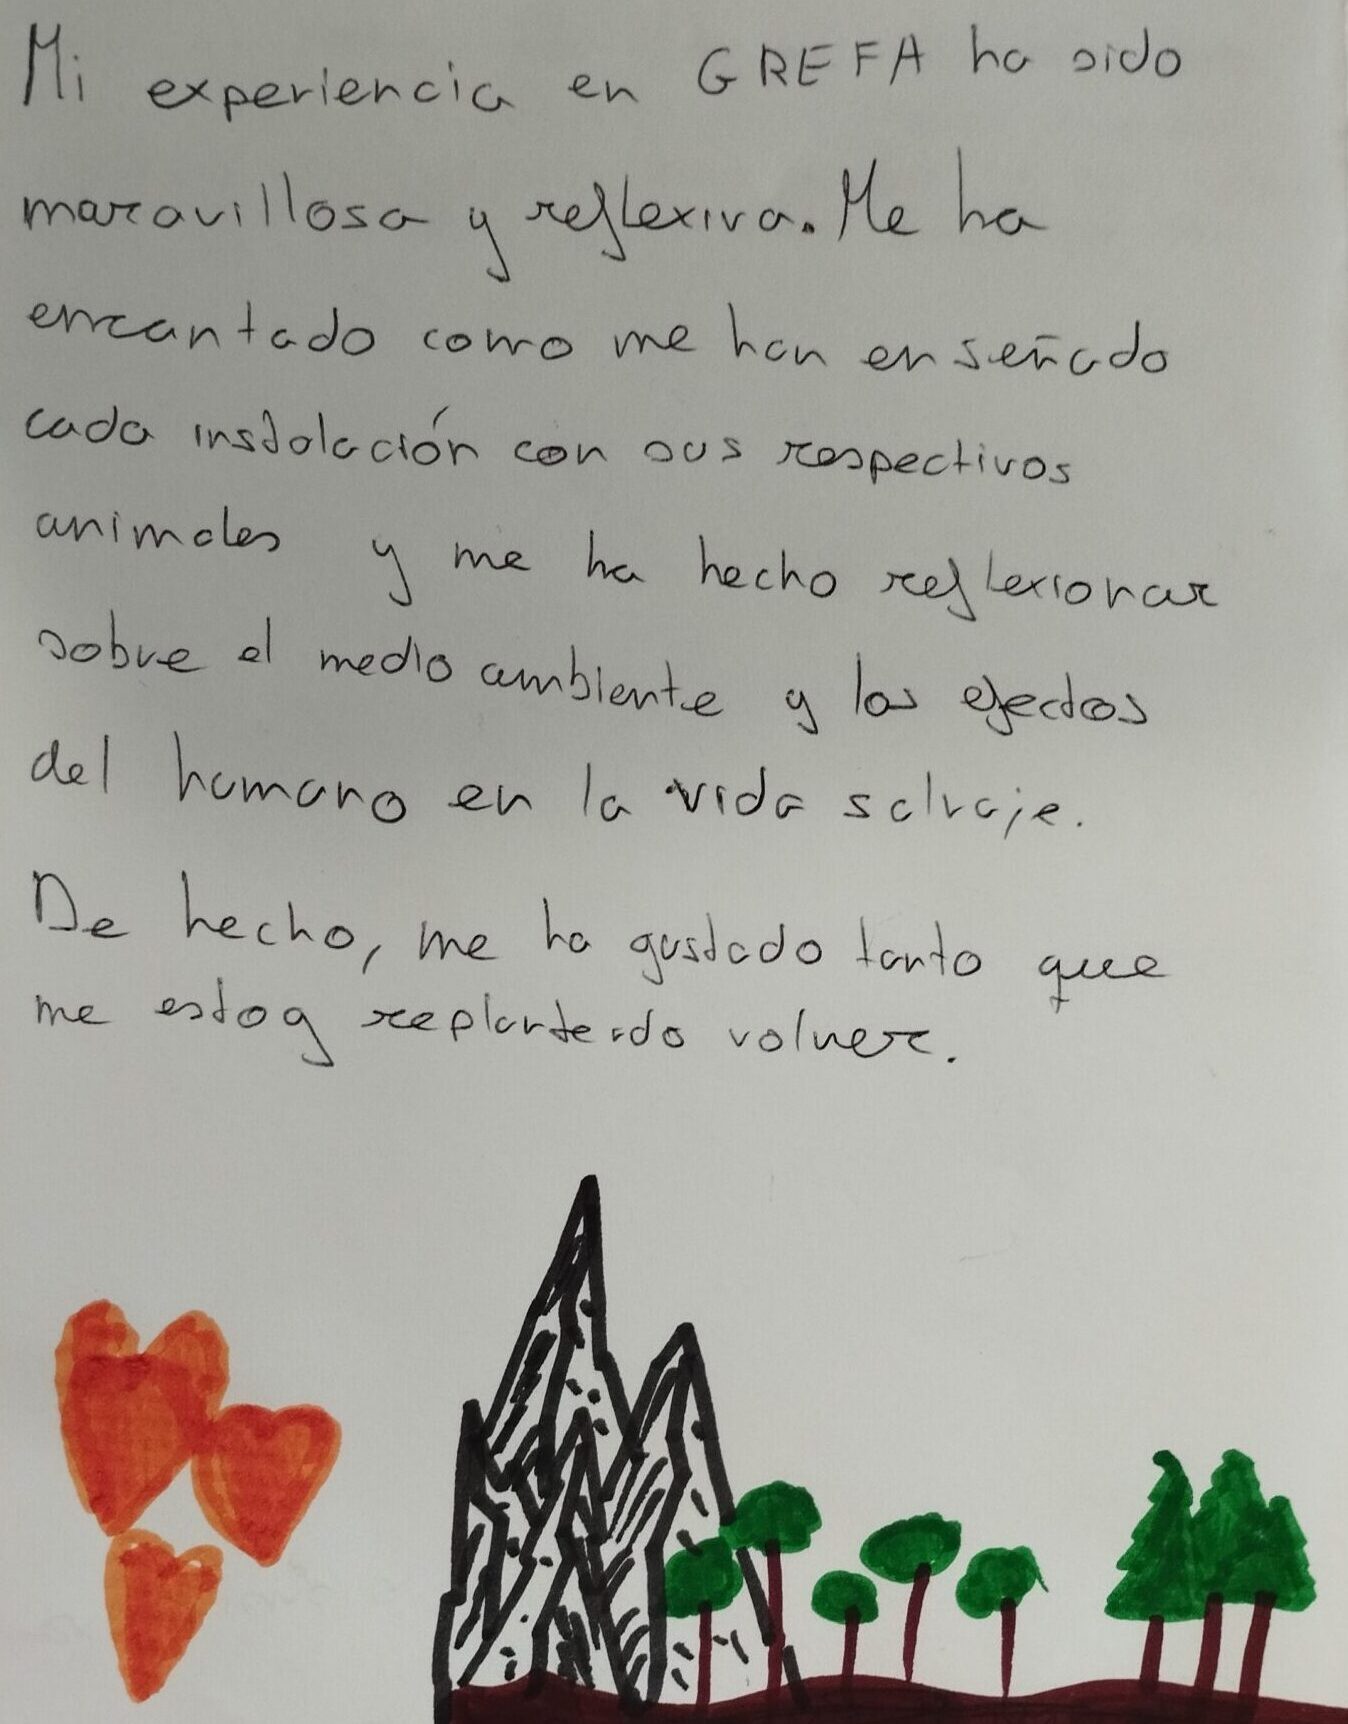 Mi experiencia en GREFA ha sido
maravillosa y reflexiva. Me ha
encantado como me han enseñado
cada instalación con sus respectivos
animales y me ha hecho reflexionar
sobre el medio ambiente y los efectos
del humano en la vida salvaje.
De hecho, me ha gustado tanto que
me estoy replanteado volver.